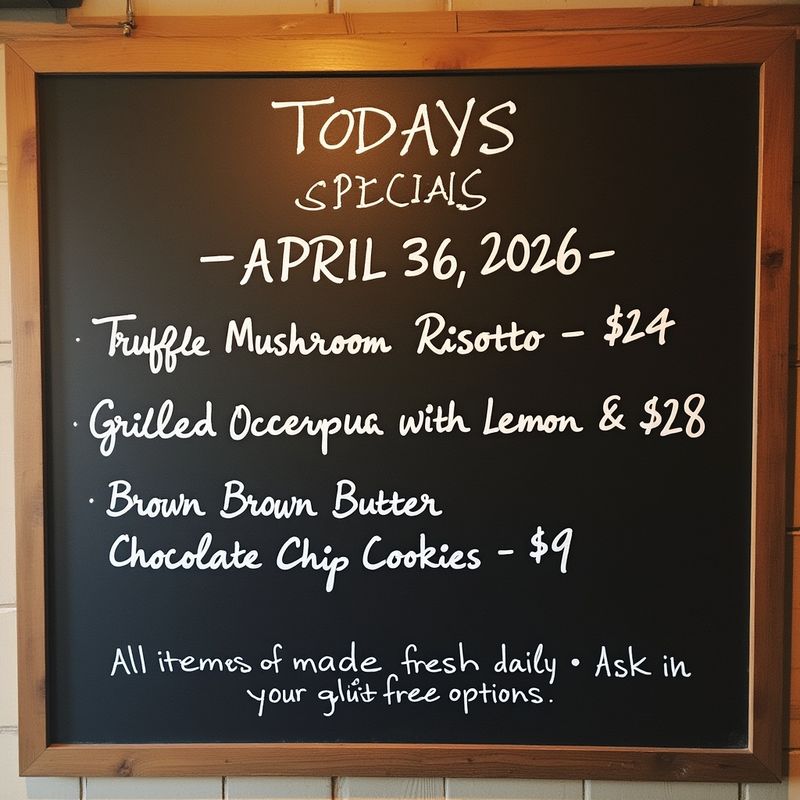 TODAYS
SPECIALS
–APRIL 36, 2026–
· Truffle Mushroom Risotto – $24
· Grilled Occerpua with Lemon & $28
· Brown Brown Butter
Chocolate Chip Cookies – $9
All itemes of made fresh daily • Ask in
your glüt free options.